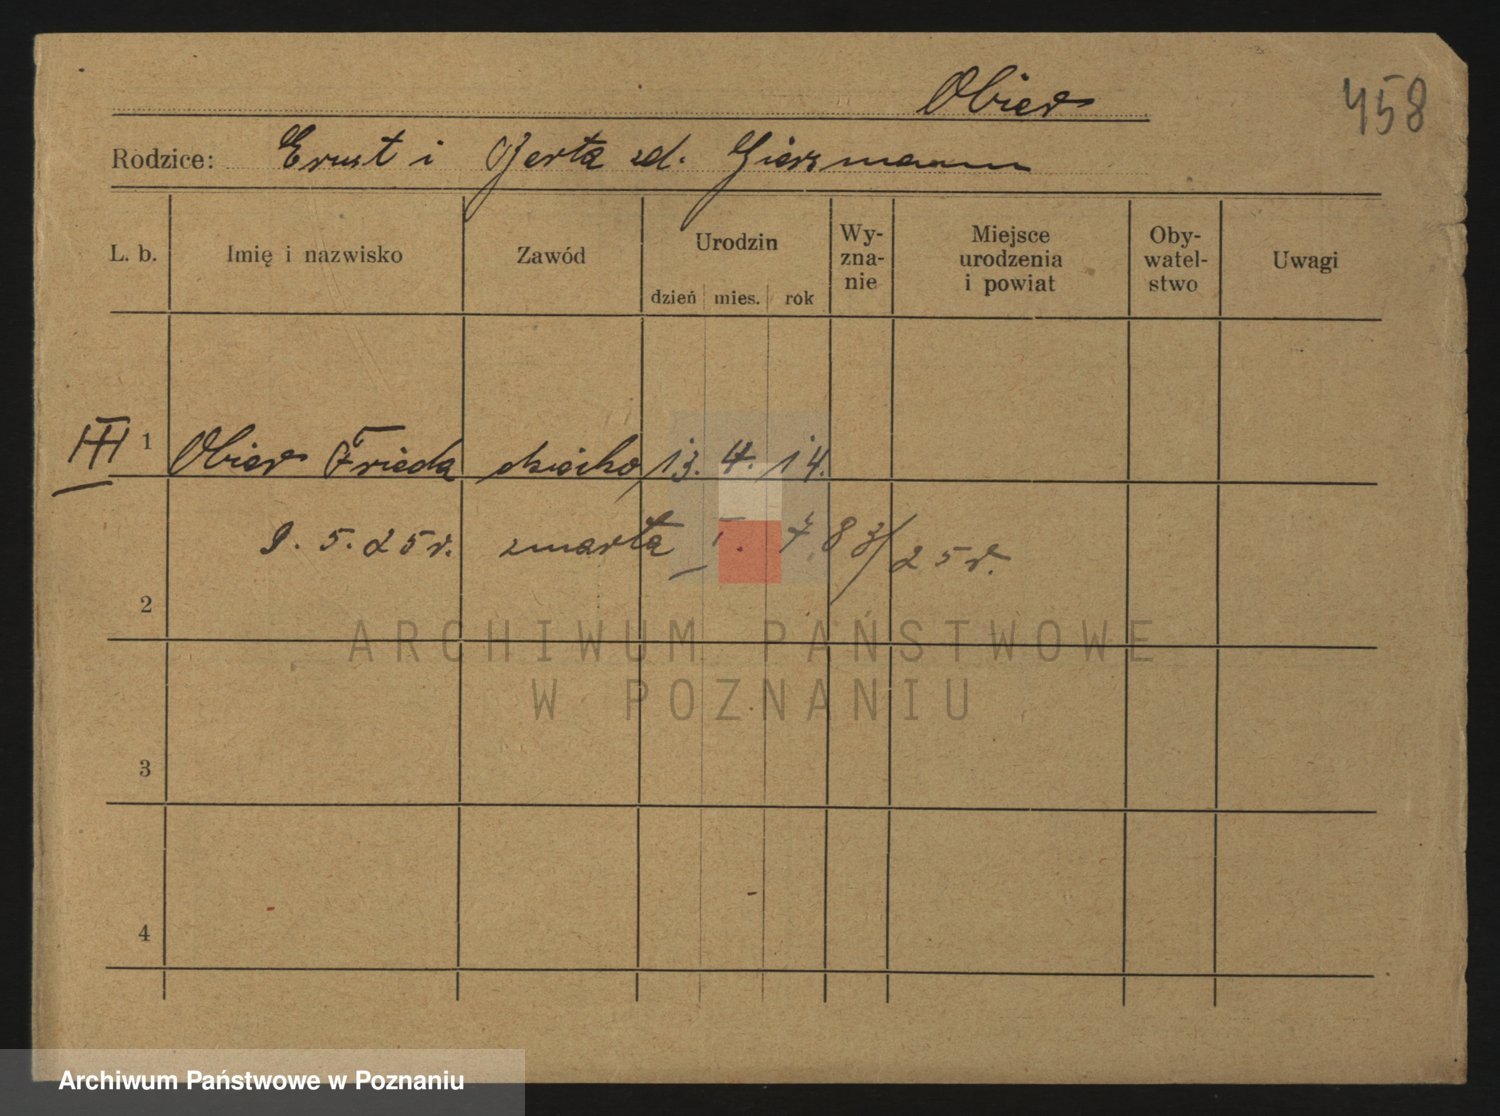 Obier
458
Rodzice: Ernst i Berta zd. Giersmann
L. b. Imię i nazwisko Zawód Urodzin dzień mies. rok Wy-zna-nie Miejsce urodzenia i powiat Oby-watel-stwo Uwagi
III 1 Obier Frieda dziecko 13. 4. 14.
9. 5. 25 r. zmarła T. 783/25 r.
2
ARCHIWUM PAŃSTWOWE
W POZNANIU
3
4
Archiwum Państwowe w Poznaniu